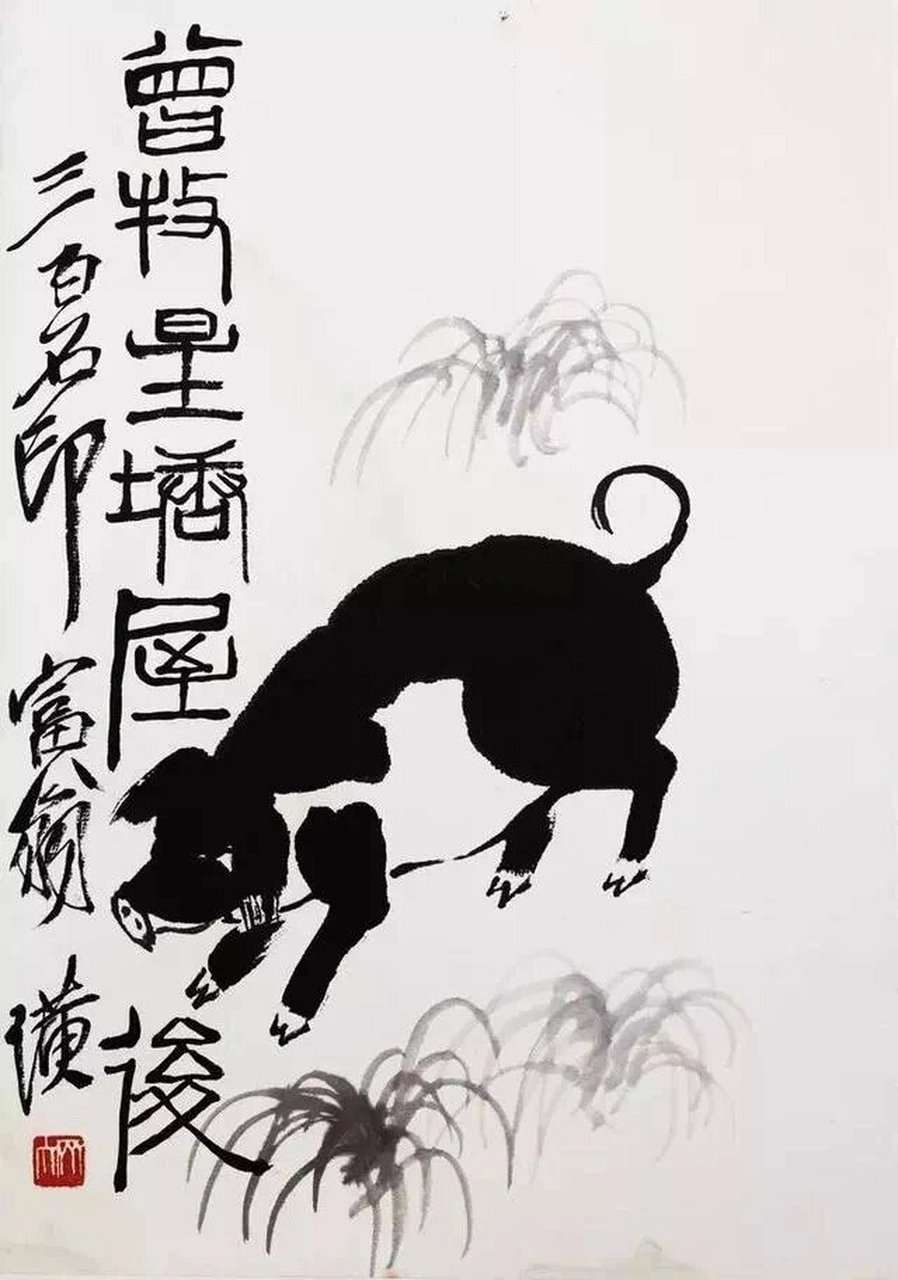 曾牧星塘屋後
三百石印富翁 璜